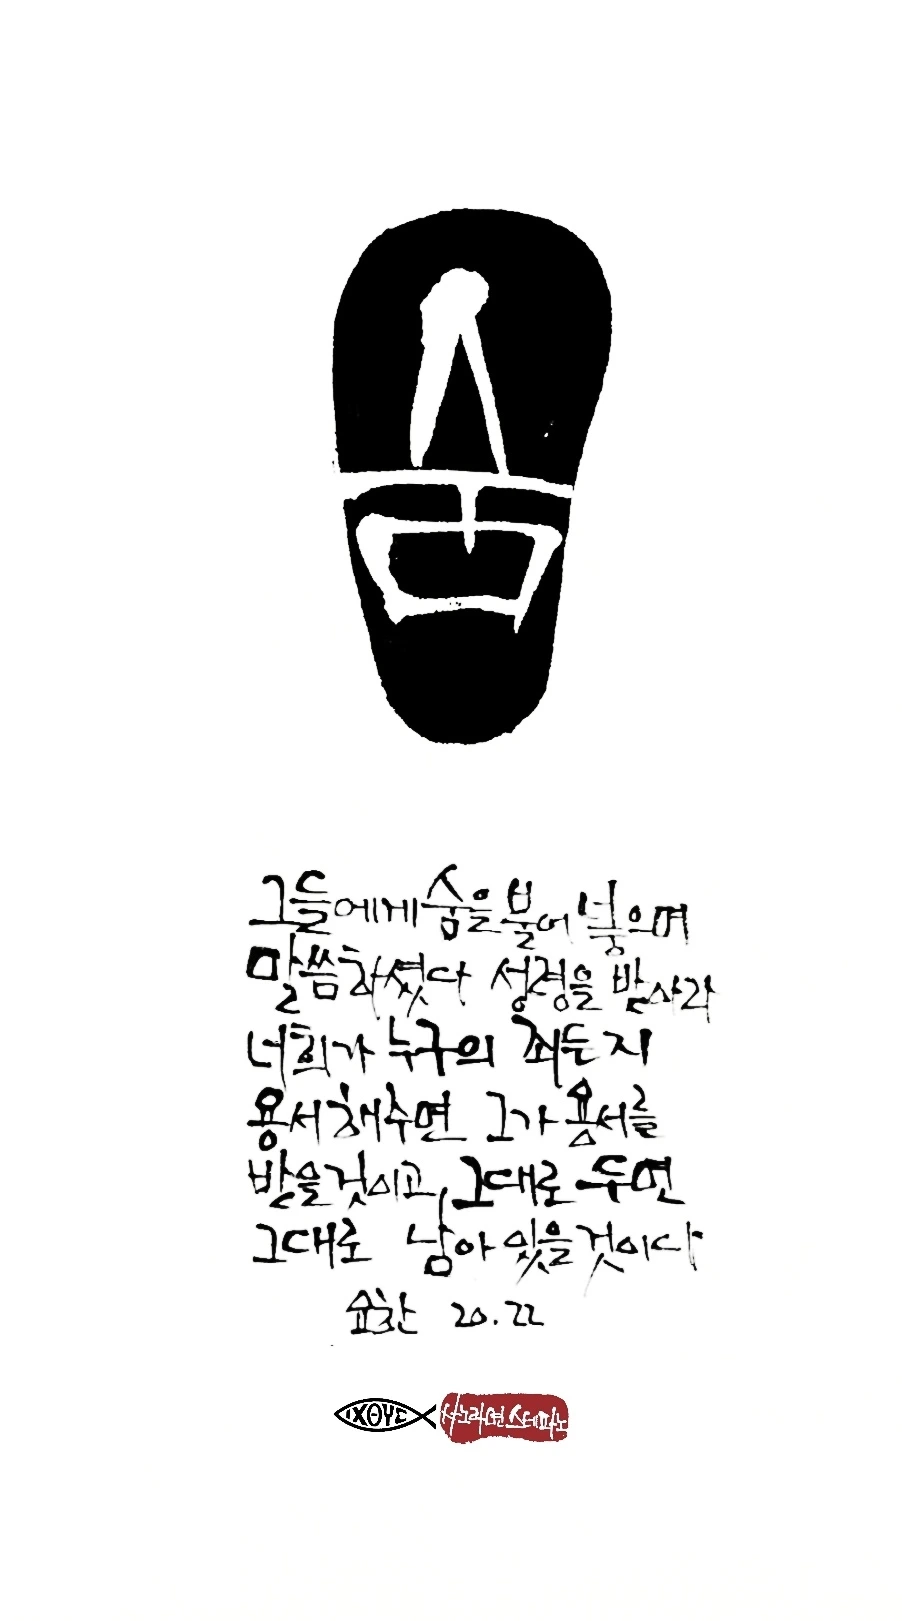 숨
그들에게 숨을 불어 넣으며
말씀하셨다 성령을 받아라
너희가 누구의 죄든지
용서해주면 그가 용서를
받을 것이고, 그대로 두면
그대로 남아 있을 것이다
요한 20.22
ΙΧΘΥΣ
스테파노